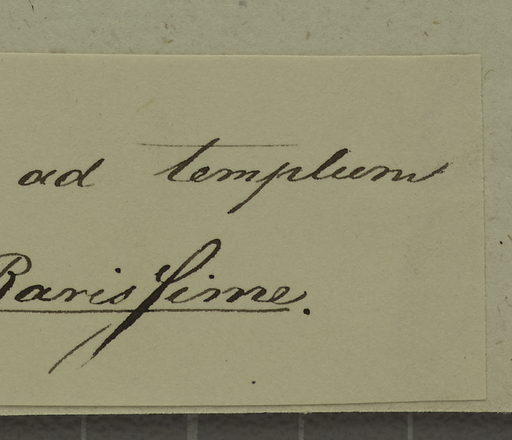 ad templum
Rarissime.